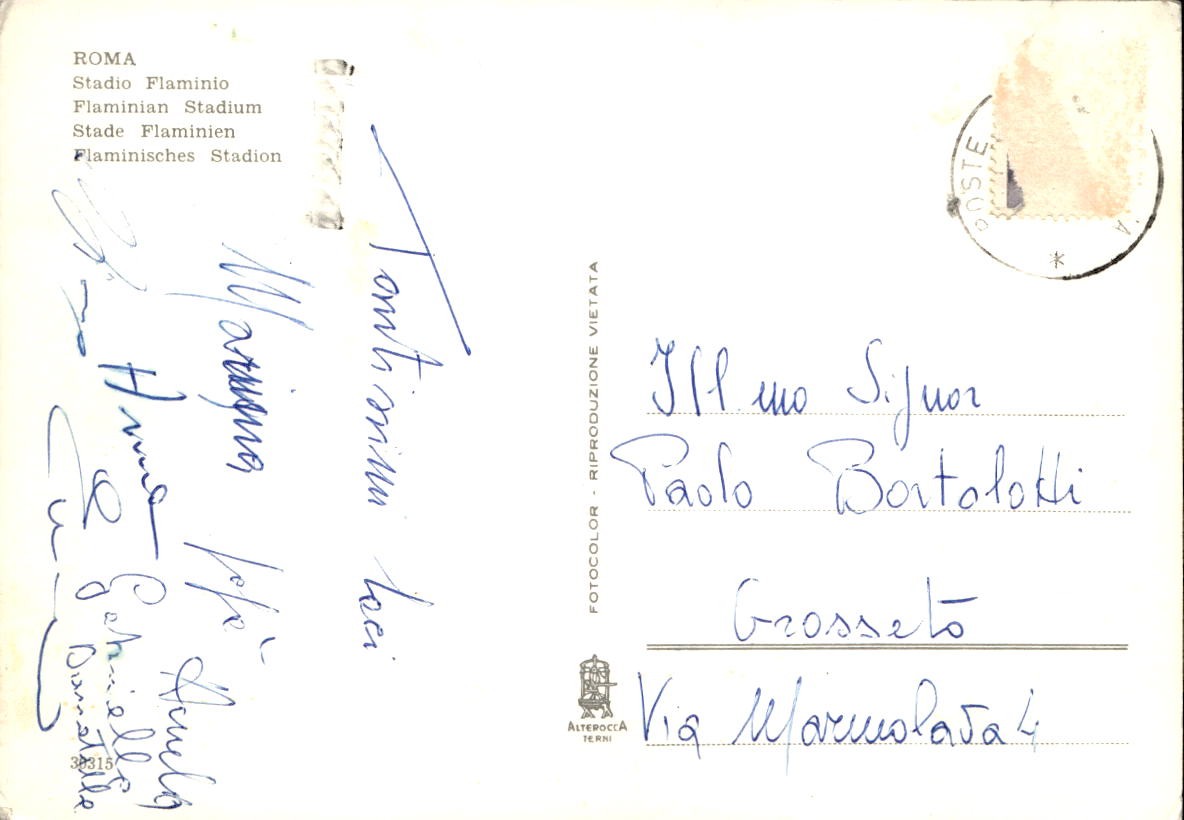 ROMA
Stadio Flaminio
Flaminian Stadium
Stade Flaminien
Flaminisches Stadion
Tantissimi baci
Marina
Fofò
Angela
Anna
Gabriella
Donatella
30315
FOTOCOLOR - RIPRODUZIONE VIETATA
ALTEROCCA
TERNI
POSTE
Ill.mo Signor
Paolo Bortolotti
Grosseto
Via Marmolada 4